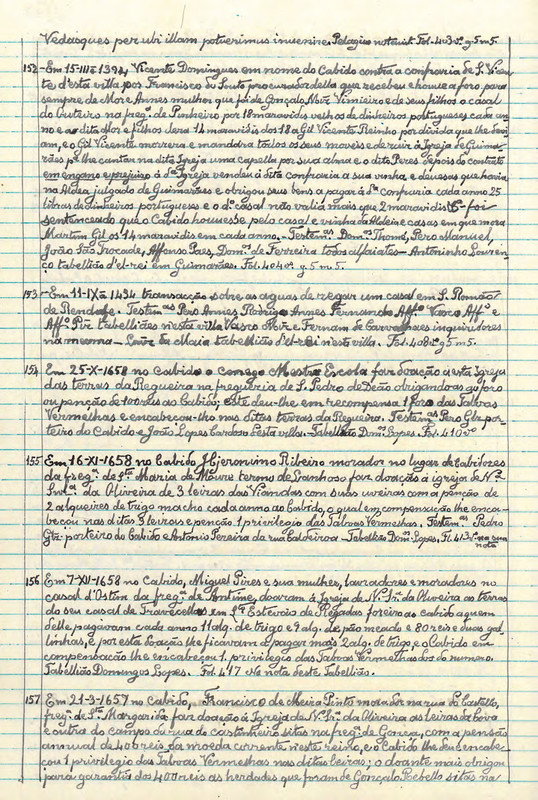 Vedasques per ubi illam potuerimus invenire. Pelagius notuit. Fol. 403 vº g 5 m 5.
152 - Em 15-III-1394 Vicente Domingues em nome do Cabido contra a confraria de S. Vicen
te d'esta villa por Francisco do Souto procurador della que recebeu e houve a foro para
sempre de Mor Annes mulher que foi de Gonçalo Vimieiro e de seus filhos o casal
do buteiro na freg. de Pinheiro por 18 maravidis velhos de dinheiros portugueses cada an
no e as ditas Mor e filhos dera 14 maravidis dos 18 a Gil Vicente Reinho por divida que lhe devi
am, e o Gil Vicente morrera e mandara todos os seus moveis e de raiz á Igreja de Guima
rães pª lhe cantar na dita Igreja uma capella por sua alma e o dito Peres depois do contrato
em engano e prejuizo á dª Igreja vendeu á dita confraria a sua vinha e devesas que havia
na Aldea julgado de Guimarães e obrigou seus bens a pagar á dª confraria cada anno 25
libras de dinheiros portugueses e o dº casal não valia mais que 2 maravidis - foi
sentenceado que o Cabido houvesse pelo casal e vinha da Aldeia e casas em que mora
Martim Gil os 14 maravidis em cada anno. - Testemªs. Domºs Thomé, Pero Manuel,
João São Trocade, Affonso Paes, Domºs de Ferreira todos alfaiates - Antoninho Louren
ço tabellião d'el-rei em Guimarães. Fol. 404 vº g. 5 m 5.
153 - Em 11-IX- 1434 transacção sobre as aguas de regar um casal em S. Romão
de Rendufe. Testemªs Pero Annes, Rodrigo Annes, Fernando Affº, Vasco Affº e
Affº Pir tabelliães nesta villa, Vasco e Fernam de inquiridores
na mesma - da Maia tabellião d'el-rei nesta villa. Fol. 408 vº g 5 m 5.
154 Em 25-X-1658 no Cabido o conego Mestre Escola faz doação á esta Igreja
das terras da Regueira na freguesia de S. Pedro de Deão obrigando-as ao foro
ou penção de 100 reis ao Cabido; este deu-lhe em recompensa 1 foro das Taboas
Vermelhas e encabeçou-lho nas ditas terras da Regueira. Testemªs Pero Glz por-
teiro do Cabido e João Lopes Cardoso desta villa. Tabellião Domºs Lopes. Fol. 410 vº
155 Em 16-XI-1658 no Cabido Jheronimo Ribeiro morador no lugar de
da fregª de Stª Maria de Moure termo de Lanhoso faz doação á igreja de Nª
Snrª da Oliveira de 3 leiras das Viandas com suas uveiras com a penção de
2 alqueires de trigo macho cada anno ao Cabido, o qual em compensação lhe enca-
beçou nas ditas 3 leiras e penção 1 privilegio das Taboas Vermelhas. Testemªs Pedro
Glz porteiro do Cabido e Antonio Pereira da rua Caldeiroa - Tabellião Domºs Lopes. Fl. 413 vº na sua
nota
156 Em 7-XII-1658 no Cabido, Miguel Pires e sua mulher, lavradores e moradores no
casal d'Ostem da fregª de Antime, doaram á Igreja de Nª Srª da Oliveira as terras
do seu casal de Travecellos em Stº Esteirvio de Regadas foreiro ao Cabido a quem
delle pagavam cada anno 11 alq. de trigo e 9 alq. de pão meado e 80 reis e duas gal
linhas, e por esta doação lhe ficavam a pagar mais 2 alq. de trigo e o Cabido em
compensação lhe encabeçou 1 privilegio das Taboas Vermelhas dos do numero.
Tabellião Domingos Lopes. Fol. 417 Na nota deste Tabellião.
157 Em 21-3-1657 no Cabido, Francisco de Meira Pinto morador na rua do Castello,
freg. de Stª Margarida faz doação á Igreja de Nª Srª da Oliveira as leiras da
e outra do campo da rua do castanheiro sitas na freg. de Gonça, com a pensão
annual de 400 reis da moeda corrente neste reino, e o Cabido lhe deu e encabe-
çou 1 privilegio das Taboas Vermelhas nas ditas leiras; o doante mais obrigou
para garantia dos 400 reis as herdades que foram de Gonçalo Rebello sitas na